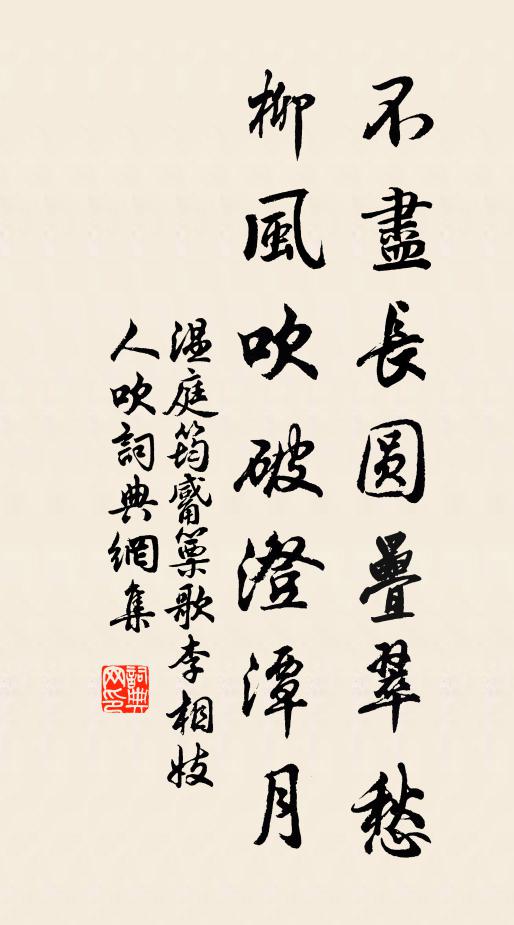 不盡長圓疊翠愁
柳風吹破澄潭月
温庭筠觱篥歌李相妓
人吹詞典網集
詞典
网印